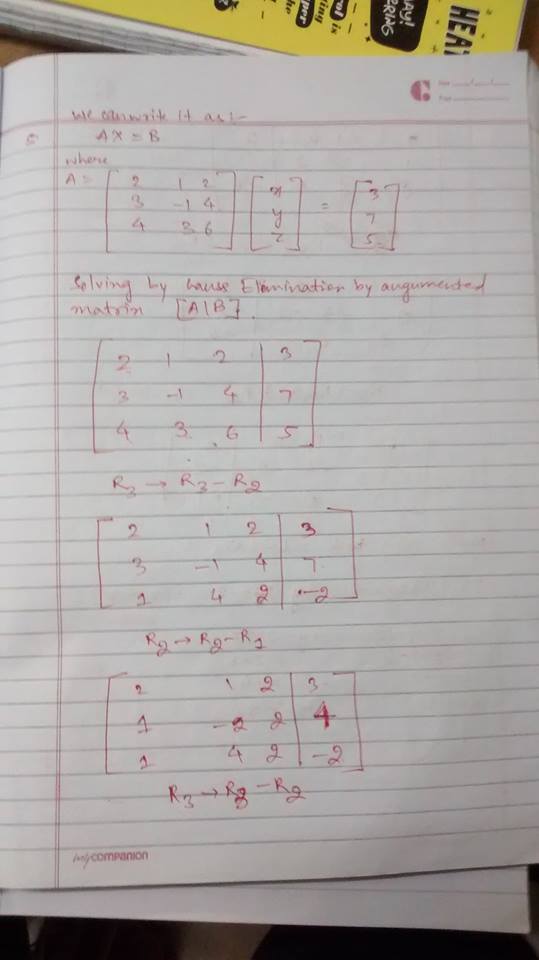 HEAT
we can write it as:-
5 AX = B
where
A = [ 2 1 2 ] [ x ] = [ 3 ]
[ 3 -1 4 ] [ y ] [ 7 ]
[ 4 3 6 ] [ z ] [ 5 ]
Solving by Gause Elamination by augumented
matrix [A|B].
[ 2 1 2 | 3 ]
[ 3 -1 4 | 7 ]
[ 4 3 6 | 5 ]
R3 → R3 - R2
[ 2 1 2 | 3 ]
[ 3 -1 4 | 7 ]
[ 1 4 2 | -2 ]
R2 → R2 - R1
[ 2 1 2 | 3 ]
[ 1 -2 2 | 4 ]
[ 1 4 2 | -2 ]
R3 → R3 - R2
mycompanion